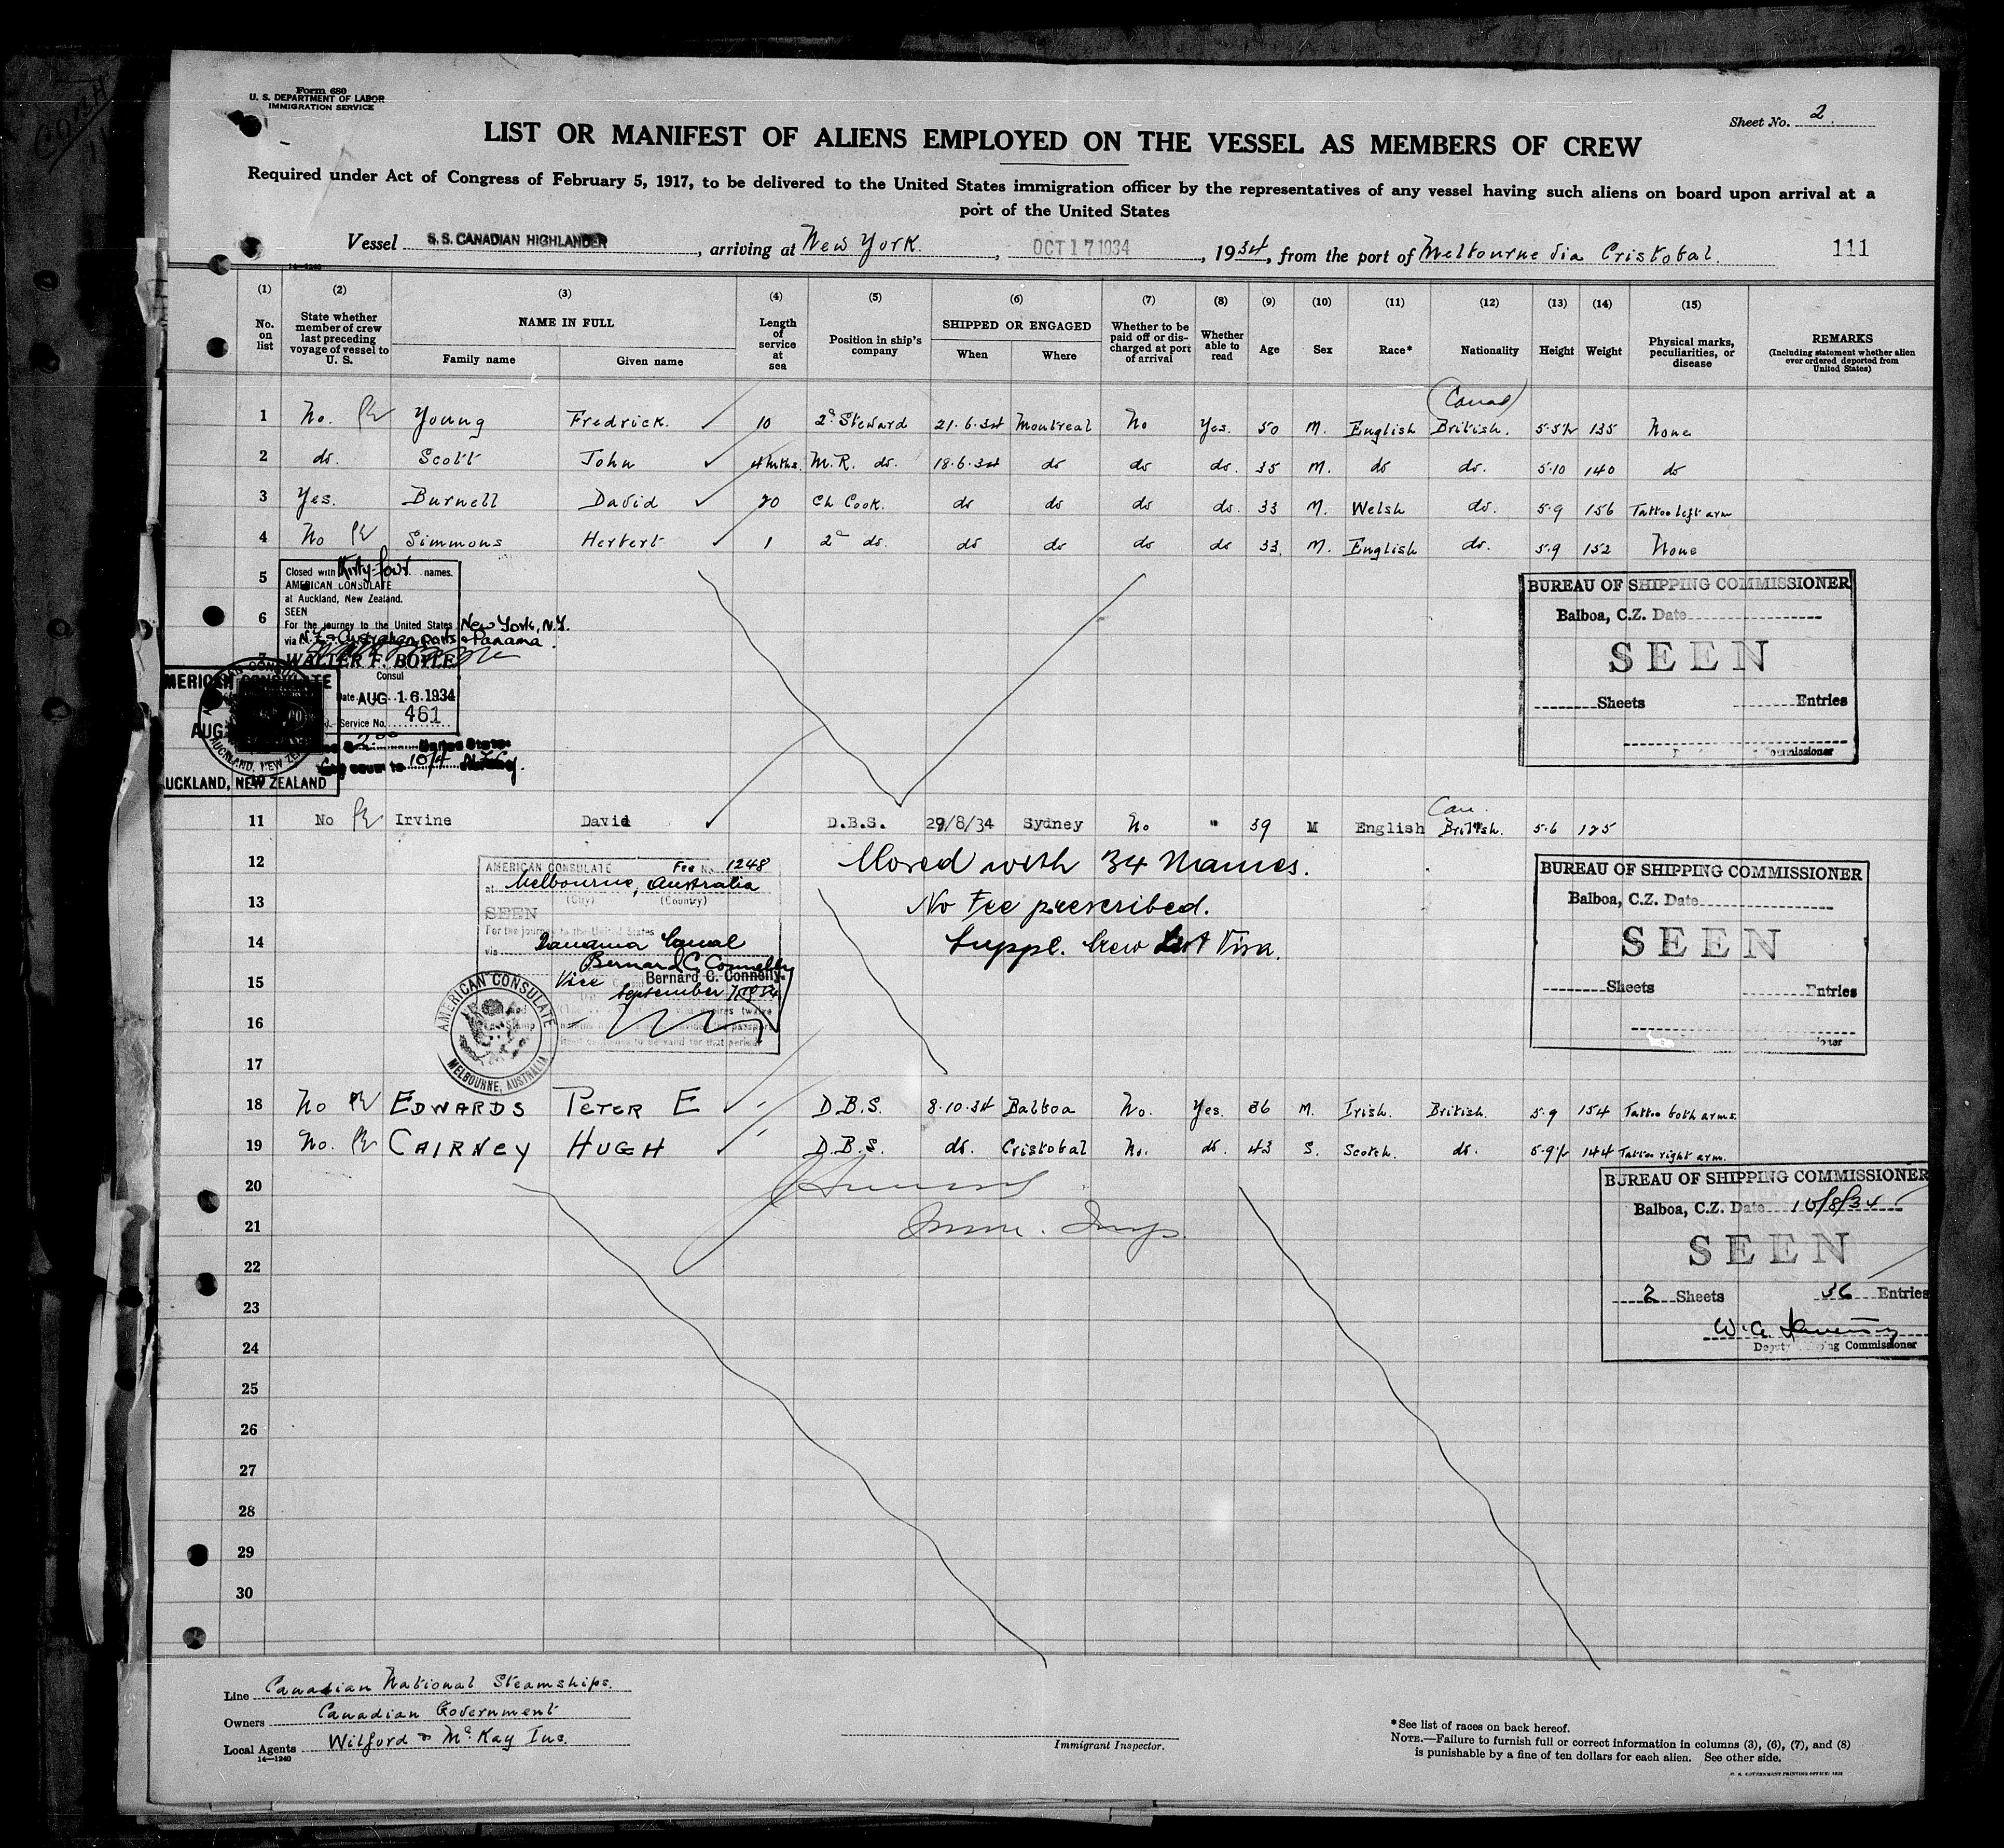 Form 680
U. S. DEPARTMENT OF LABOR
IMMIGRATION SERVICE
Sheet No. 2
LIST OR MANIFEST OF ALIENS EMPLOYED ON THE VESSEL AS MEMBERS OF CREW
Required under Act of Congress of February 5, 1917, to be delivered to the United States immigration officer by the representatives of any vessel having such aliens on board upon arrival at a
port of the United States
Vessel S.S. CANADIAN HIGHLANDER, arriving at New York, OCT 17 1934, 1934, from the port of Melbourne via Cristobal. 111
14-1240
(1) (2) (3) (4) (5) (6) (7) (8) (9) (10) (11) (12) (13) (14) (15)
No. on list
State whether member of crew last preceding voyage of vessel to U. S.
NAME IN FULL
Family name
Given name
Length of service at sea
Position in ship's company
SHIPPED OR ENGAGED
When
Where
Whether to be paid off or discharged at port of arrival
Whether able to read
Age
Sex
Race*
Nationality
Height
Weight
Physical marks, peculiarities, or disease
REMARKS
(Including statement whether alien ever ordered deported from United States)
(Canad)
1 No. Young Fredrick. 10 2d Steward 21.6.34 Montreal No Yes. 50 M. English British. 5.5½ 135 None
2 do. Scott John 4 mths. M.R. do. 18.6.34 do do do. 35 M. do do. 5.10 140 do
3 Yes. Burnell David 20 Ch Cook. do do do do. 33 M. Welsh do. 5.9 156 Tattoo left arm
4 No Simmons Herbert 1 2d do. do do do do 33. M. English do. 5.9 152 None
5
6
7
Closed with thirty-four names.
AMERICAN CONSULATE
at Auckland, New Zealand.
SEEN
For the journey to the United States New York, N.Y.
via N.Z. & Australian ports & Panama.
WALTER F. BOYLE
Consul
Date AUG 16 1934
Service No. 461
AMERICAN CONSULATE
AUG
AUCKLAND, NEW ZEALAND
BUREAU OF SHIPPING COMMISSIONER
Balboa, C.Z. Date
SEEN
Sheets Entries
Commissioner
Can.
11 No Irvine David D.B.S. 29/8/34 Sydney No " 39 M English British. 5.6 125
12 Closed with 34 Names.
13 No Fee prescribed.
14 Suppl. Crew List Visa.
15
16
17
AMERICAN CONSULATE Fee No. 1248
at Melbourne, Australia
(City) (Country)
SEEN
For the journey to the United States
via Panama Canal
Bernard C. Connelly
Vice Bernard C. Connelly.
September
AMERICAN CONSULATE
MELBOURNE, AUSTRALIA
BUREAU OF SHIPPING COMMISSIONER
Balboa, C.Z. Date
SEEN
Sheets Entries
18 No EDWARDS PETER E D.B.S. 8.10.34 Balboa No. Yes. 36 M. Irish. British. 5.9 154 Tattoo both arms.
19 No. CAIRNEY HUGH D.B.S. do. Cristobal No. do. 43 S. Scotch. do. 5.9½ 144 Tattoo right arm.
20
21 Imm. Insp.
22
23
24
25
26
27
28
29
30
BUREAU OF SHIPPING COMMISSIONER
Balboa, C.Z. Date 10/8/34
SEEN
2 Sheets 36 Entries
Deputy Shipping Commissioner
Line Canadian National Steamships.
Owners Canadian Government
Local Agents Wilford & McKay Inc.
14-1240
Immigrant Inspector.
*See list of races on back hereof.
NOTE.—Failure to furnish full or correct information in columns (3), (6), (7), and (8)
is punishable by a fine of ten dollars for each alien. See other side.